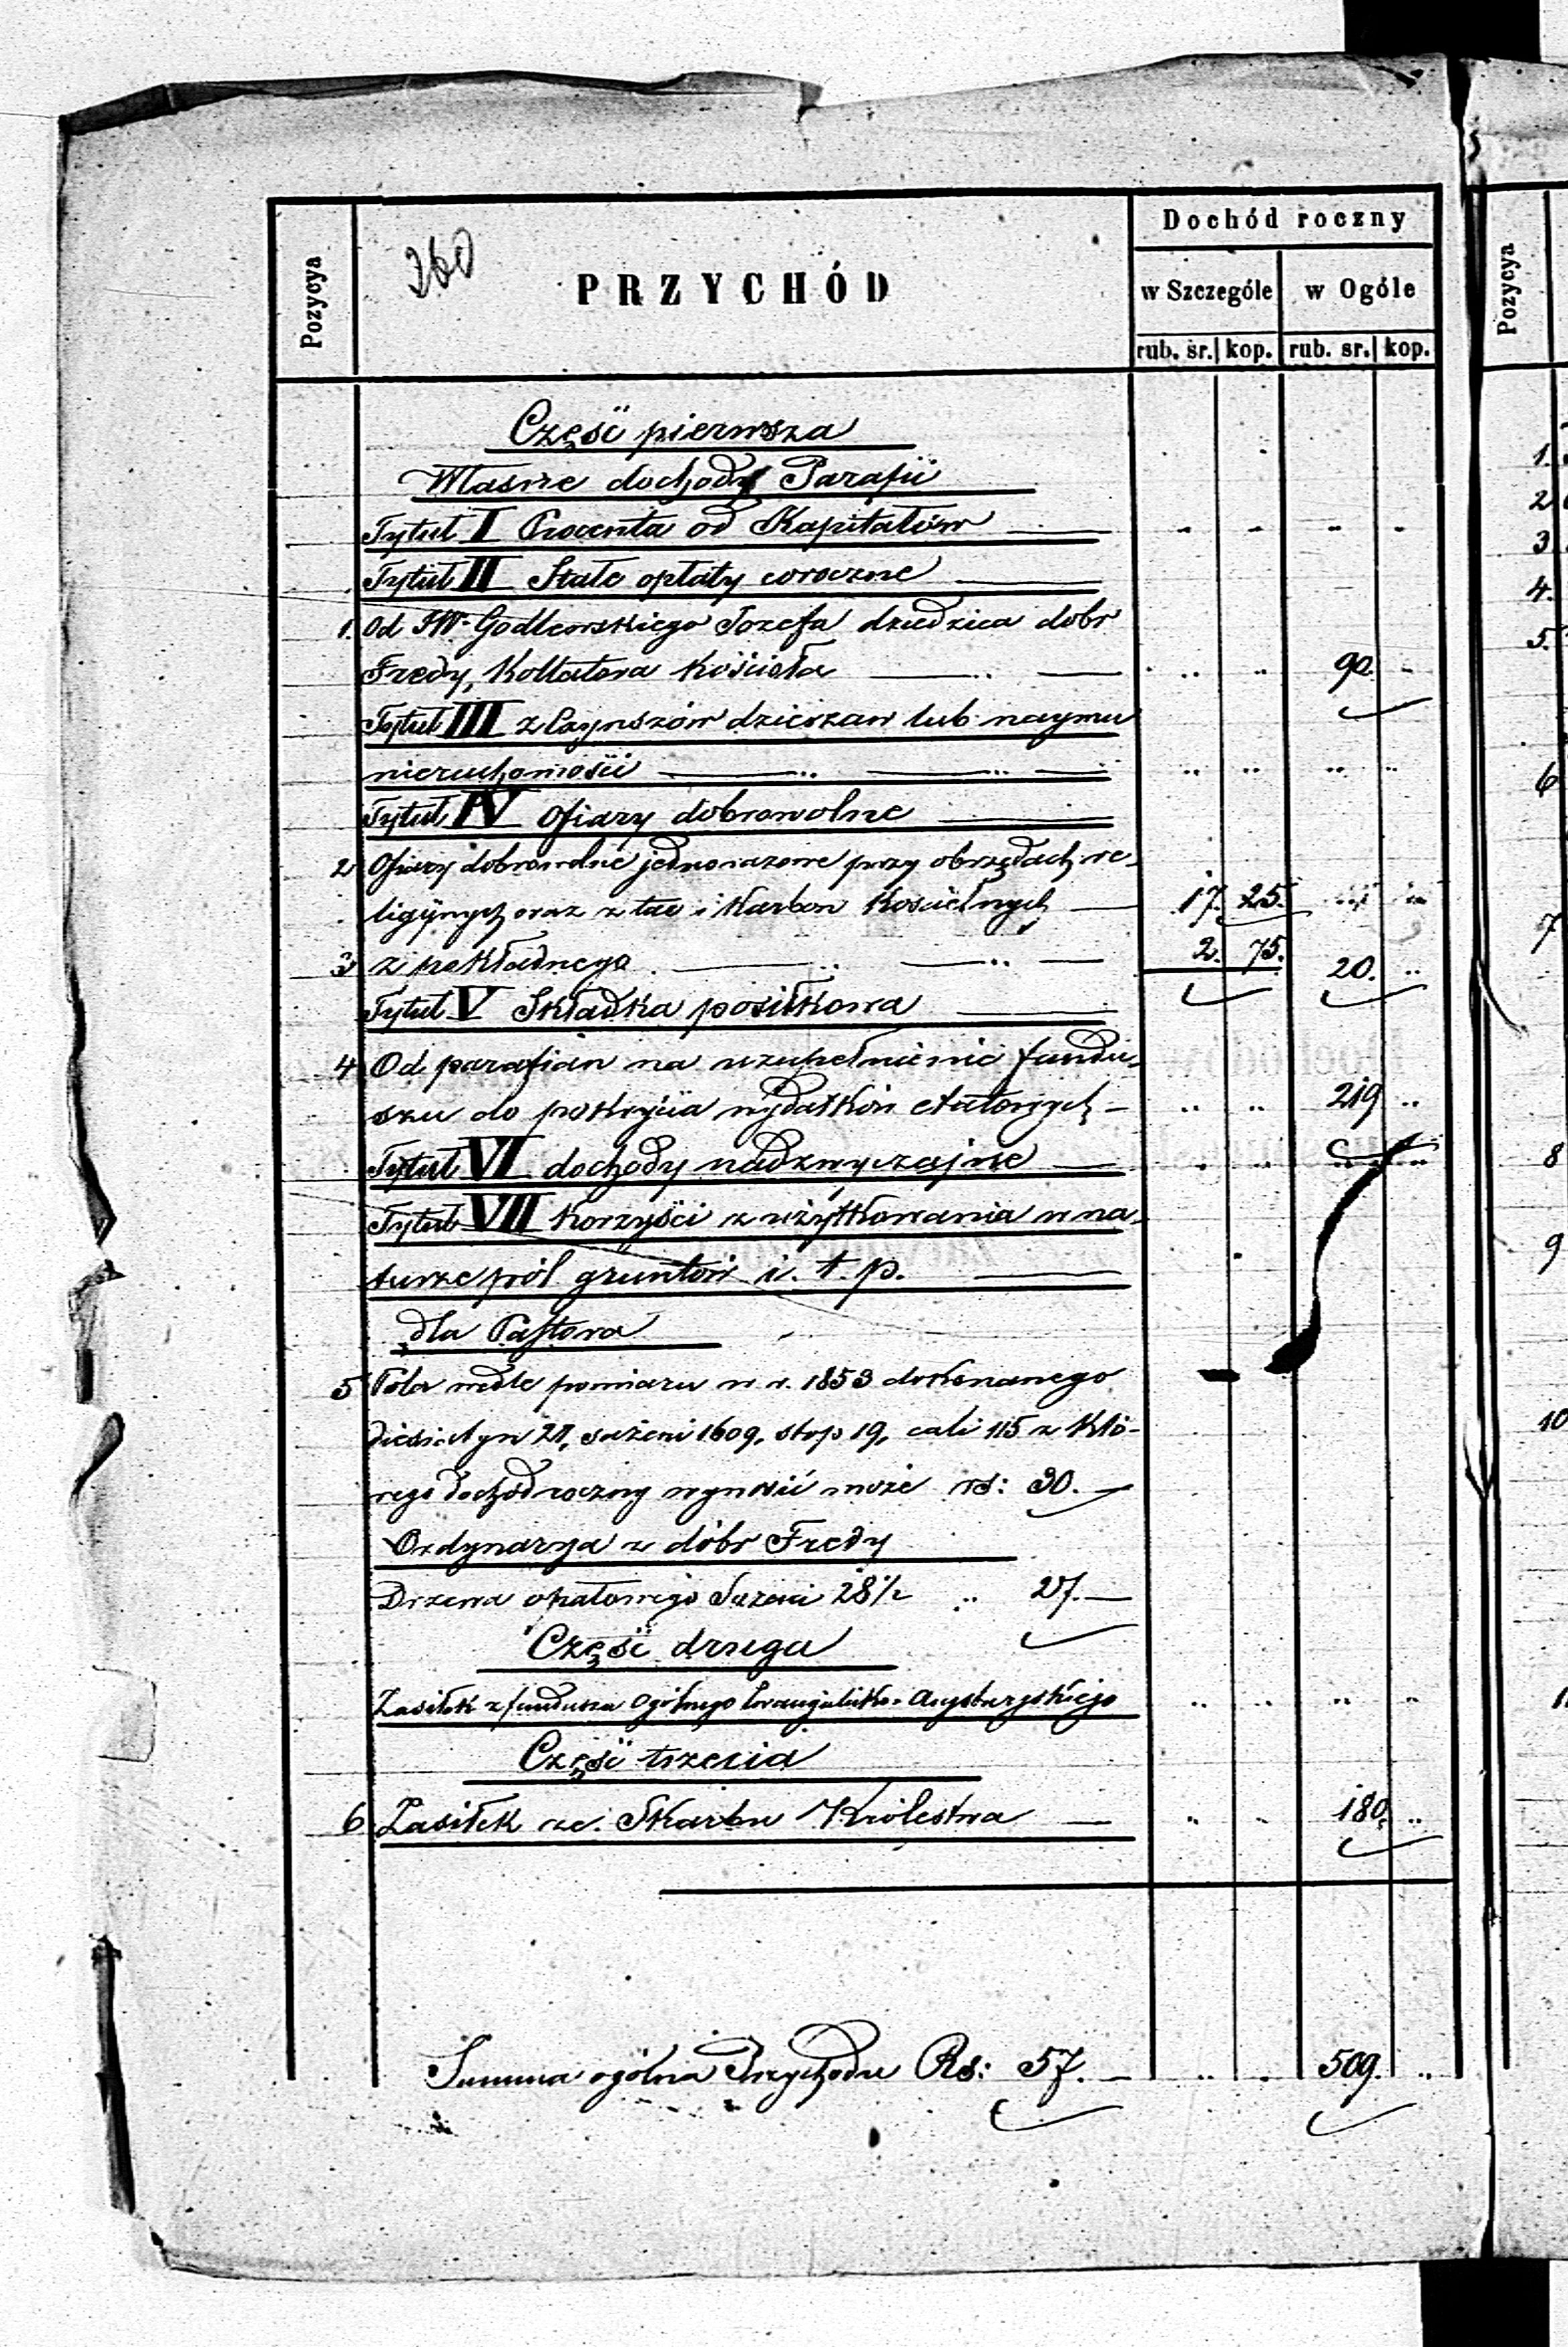 Dochód roczny
Pozycya 260 PRZYCHÓD w Szczególe w Ogóle Pozycya
rub. sr. kop. rub. sr. kop.
Część pierwsza
Własne dochody Parafii
Tytuł I Procenta od Kapitałów
Tytuł II Stałe opłaty coroczne
1. Od JW. Godlewskiego Jozefa dziedzica dobr
Fredy, Kollatora Kościoła 90.
Tytuł III z Czynszów dzierzaw lub naymu
nieruchomości
Tytuł IV Ofiary dobrowolne
2 Ofiary dobrowolne jednorazowe przy obrzędach re-
ligijnych oraz z tac i Karbon Kościelnych 17. 25.
3 z pokładnego 2. 75. 20.
Tytuł V Składka posiłkowa
4 Od parafian na uzupełnienie fundu-
szu do pokrycia wydatków etatowych 219
Tytuł VI dochody nadzwyczajne
Tytuł VII Korzyści z użytkowania w na-
turze pól gruntów i. t. p.
dla Pastora
5 Pola wedle pomiaru w r. 1853 dokonanego
diesiatyn 21, sażeni 1609, stop 19, cali 115 z któ-
rego dochód roczny wynosić może rs: 30.
Ordynarya z dóbr Fredy
Drzewa opałowego Sażeni 28½ 27.
Część druga
Zasiłek z funduszu Ogólnego Ewangielicko-Augsburgskiego
Część trzecia
6 Zasiłek ze Skarbu Królestwa 180.
Summa ogólna Przychodu Rs: 57. 509.
1.
2
3
4.
5.
6
7
8
9
10